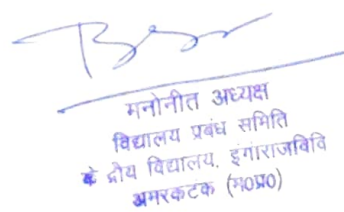 मनोनीत अध्यक्ष
विद्यालय प्रबंध समिति
के द्रीय विद्यालय, इंगांराजविवि
अमरकंटक (म0प्र0)